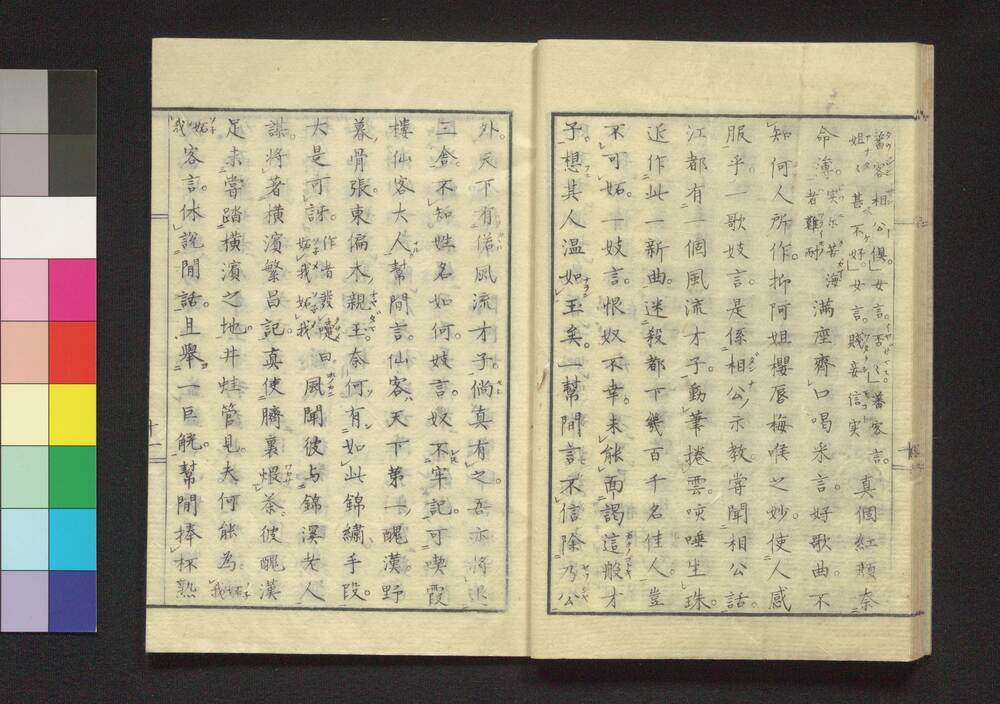 蕃客相公倶女言否〻蕃客言
姐〻甚不好女言賤妾信実
真個紅顔奈
命薄。実尓苦海
者難耐
満座齊口喝采言。好歌曲。不
知何人所作。抑阿姐櫻唇梅喉之妙。使人感
服乎。一歌妓言。是係相公示教。嘗聞相公話。
江都有一個風流才子。動筆捲雲。唾生珠。
近作此一新曲。迷殺都下幾百千名佳人。豈
不可妬。一妓言。恨奴不幸。未能面謁這般才
子。想其人温如玉矣。一幇間言。不信除乃公
外。天下有偌風流才子。倘真有之。吾亦將退
三舍。不知姓名如何。妓言。奴不牢記。可喫霞
樓仙客大人。幇間言。仙客、天下第一醜漢。野
暮骨張東偏木親玉。奈何有如此錦繡手段。
大是可訝。
作者發嚏曰
妬我妬我
風聞彼与錦溪老人
謀。將著横濱繁昌記。真使臍裏煆茶。彼醜漢
足未嘗踏横濱之地。井蛙管見。夫何能為。
妬我
妬我
客言。休説閒話。且舉一巨觥。幇間捧杯熟
十一